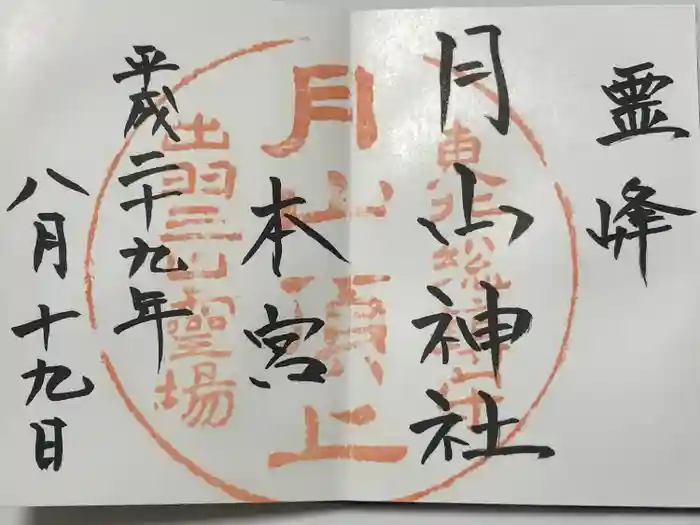 霊峰
月山神社
本宮
平成二十九年
八月十九日
東北総鎮守
月山頂上
出羽三山霊場